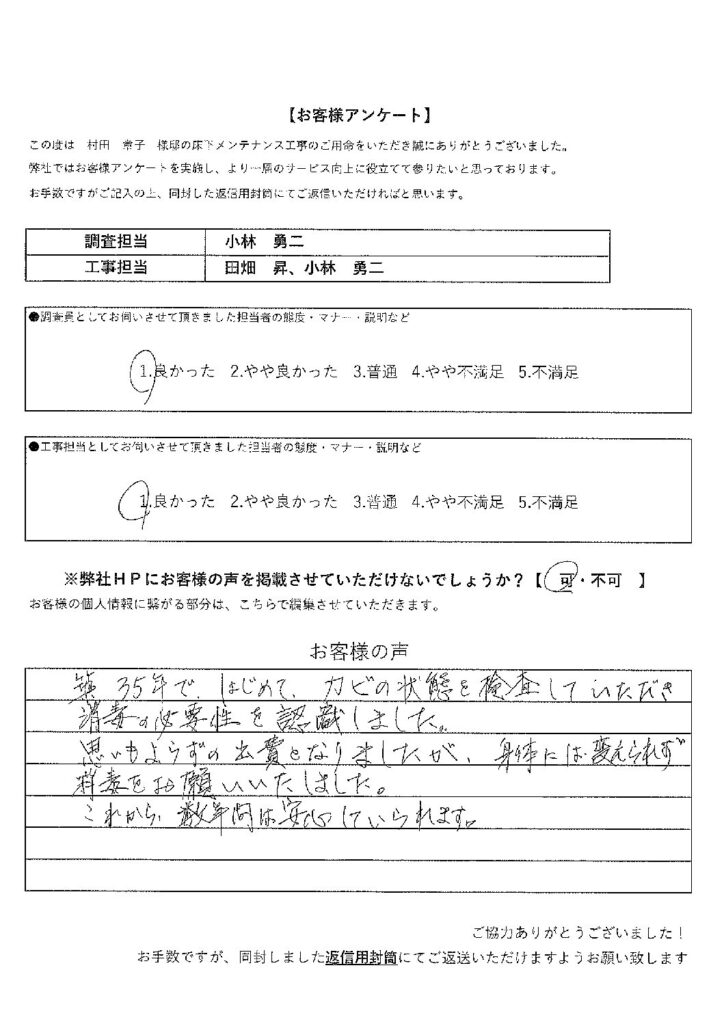 【お客様アンケート】
この度は 村田 常子 様邸の床下メンテナンス工事のご用命をいただき誠にありがとうございました。
弊社ではお客様アンケートを実施し、より一層のサービス向上に役立てて参りたいと思っております。
お手数ですがご記入の上、同封した返信用封筒にてご返信いただければと思います。
調査担当 小林 勇二
工事担当 田畑 昇、小林 勇二
●調査員としてお伺いさせて頂きました担当者の態度・マナー・説明など
1.良かった 2.やや良かった 3.普通 4.やや不満足 5.不満足
●工事担当としてお伺いさせて頂きました担当者の態度・マナー・説明など
1.良かった 2.やや良かった 3.普通 4.やや不満足 5.不満足
※弊社HPにお客様の声を掲載させていただけないでしょうか？【 可・不可 】
お客様の個人情報に繋がる部分は、こちらで編集させていただきます。
お客様の声
築35年で、はじめて、カビの状態を検査していただき
消毒の必要性を認識しました。
思いもよらずの出費となりましたが、身体には変えられず
消毒をお願いいたしました。
これから、数年間は安心していられます。
ご協力ありがとうございました！
お手数ですが、同封しました返信用封筒にてご返送いただけますようお願い致します